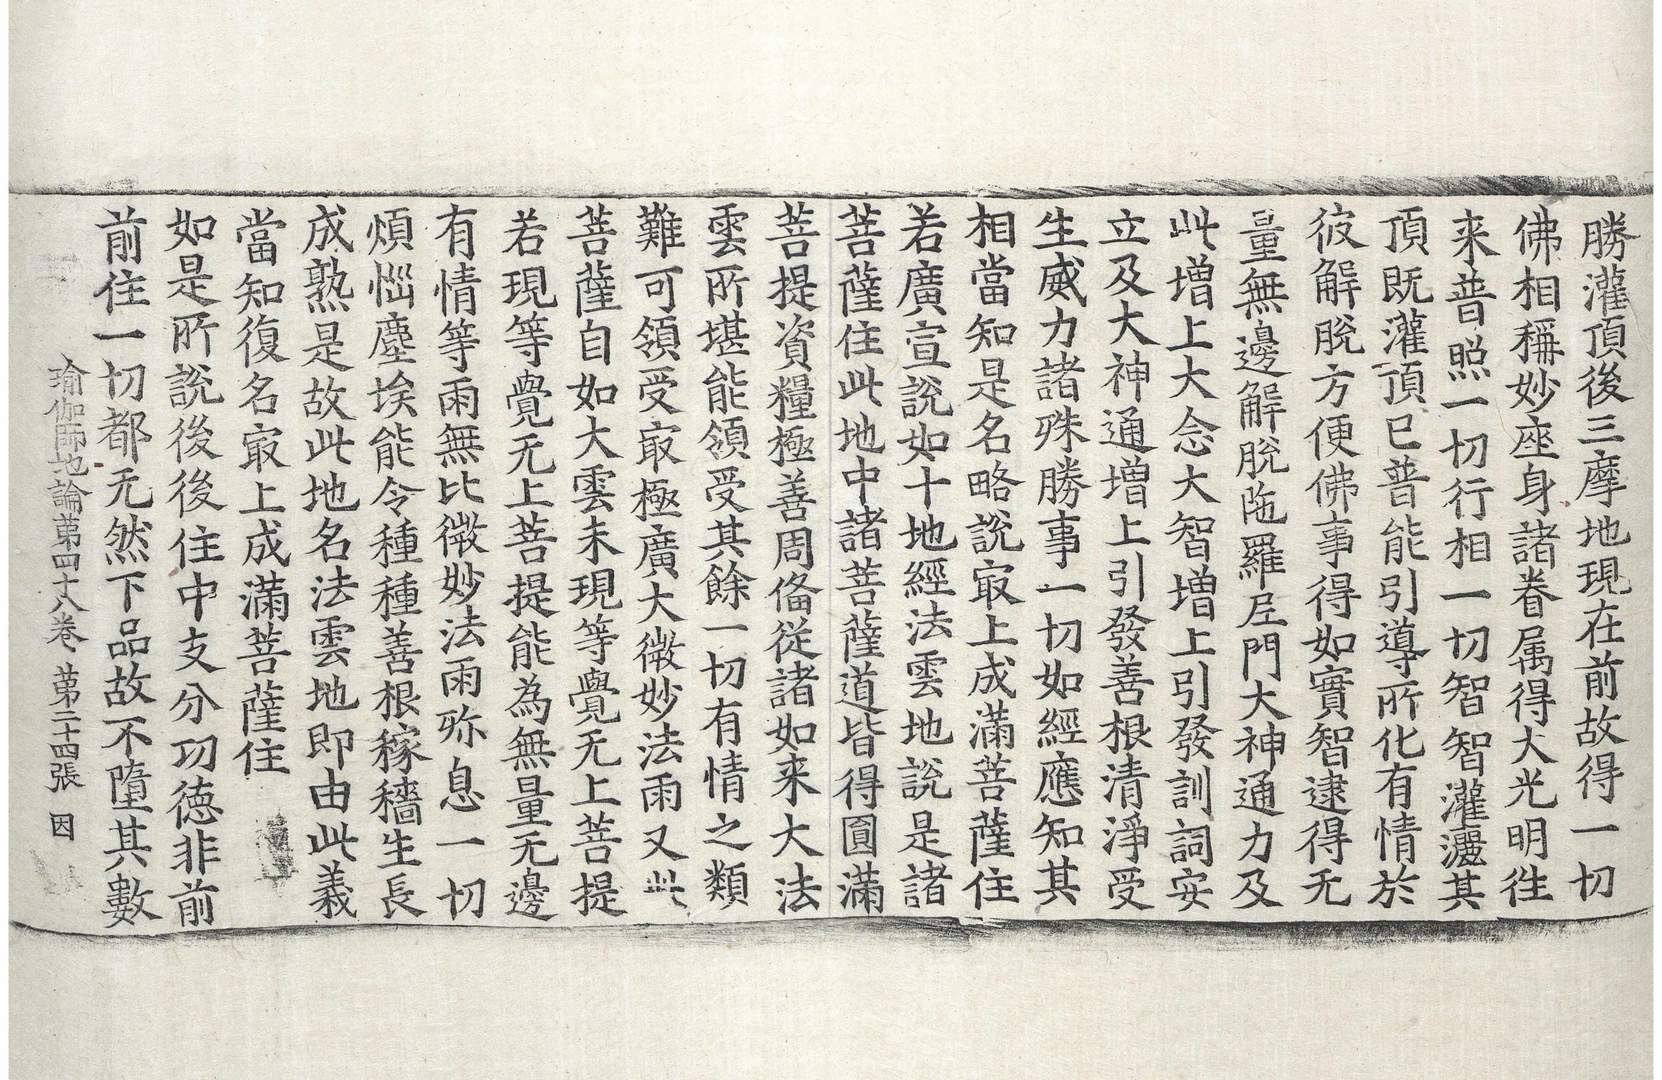 勝灌頂後三摩地現在前故得一切
佛相稱妙座身諸眷属得大光明徃
来普照一切行相一切智智灌灑其
頂既灌頂已普能引導所化有情於
彼解脫方便佛事得如實智逮得无
量無邊解脫陁羅尼門大神通力及
此增上大念大智增上引發訓詞安
立及大神通增上引發善根清淨受
生威力諸殊勝事一切如經應知其
相當知是名略說㝡上成滿菩薩住
若廣宣說如十地經法雲地說是諸
菩薩住此地中諸菩薩道皆得圓滿
菩提資糧極善周俻從諸如来大法
雲所堪能領受其餘一切有情之類
難可領受㝡極廣大微妙法雨又此
菩薩自如大雲未現等覺无上菩提
若現等覺无上菩提能為無量无邊
有情等雨無比微妙法雨殄息一切
煩惱塵埃能令種種善根稼穡生長
成熟是故此地名法雲地即由此義
當知復名㝡上成滿菩薩住
如是所說後後住中支分功德非前
前住一切都无然下品故不墮其數
瑜伽師地論苐四十八卷 苐二十四張 因